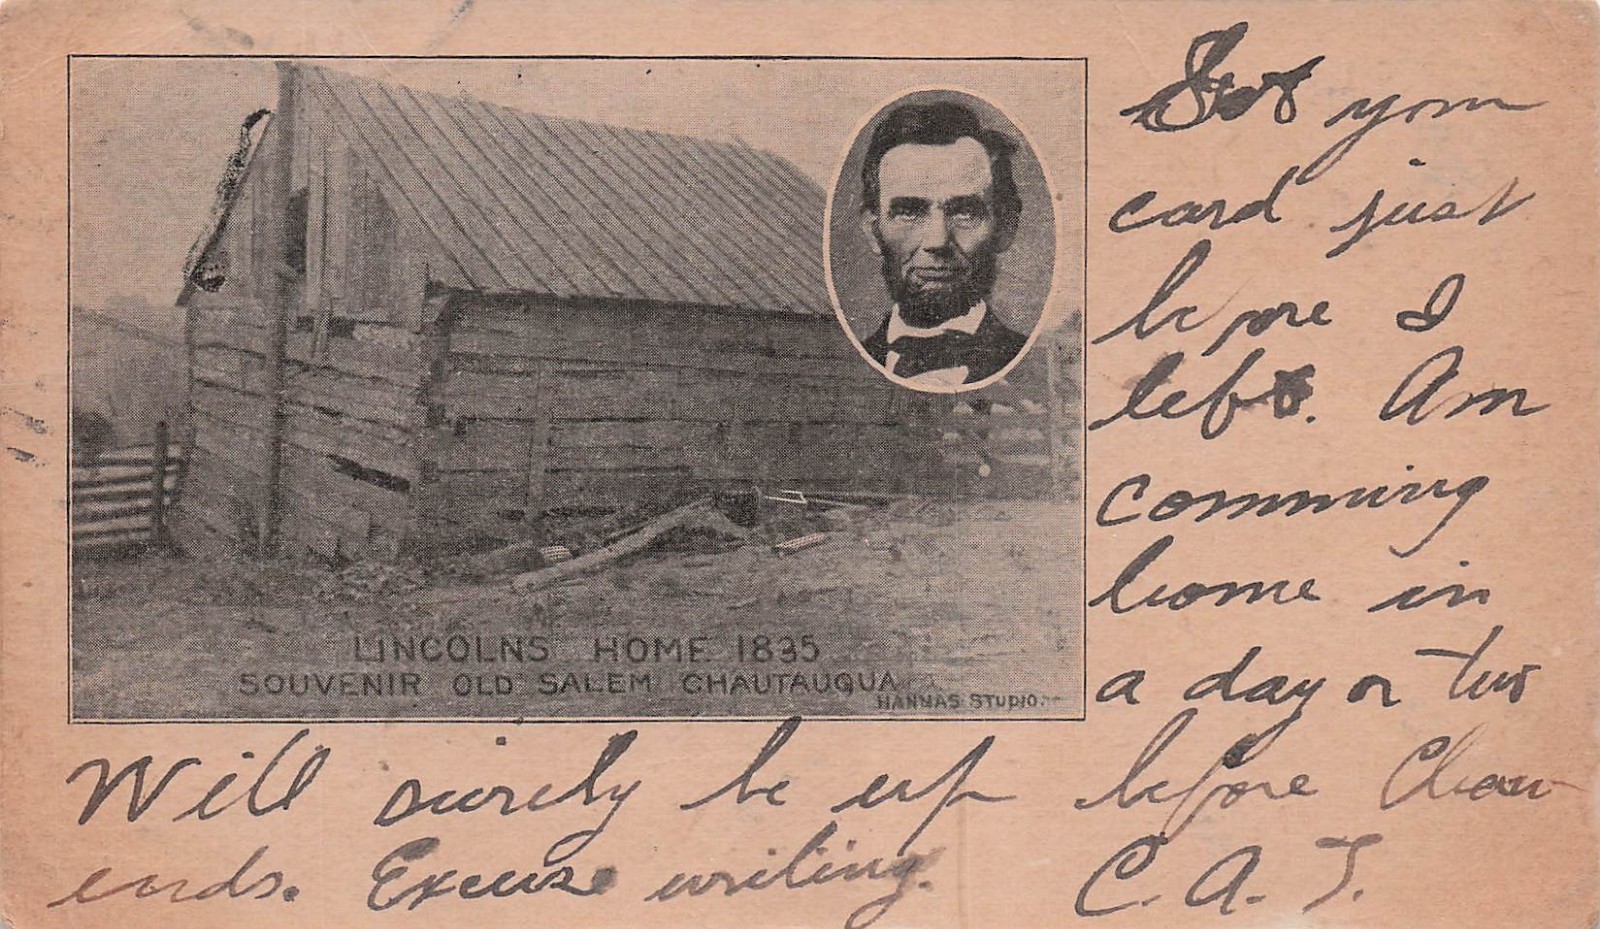 LINCOLNS HOME 1835
SOUVENIR OLD SALEM CHAUTAUQUA
HANNAS STUDIO.
Got your
card just
before I
left. Am
comming
home in
a day or two
Will surely be up before Chau
ends. Excuse writing. C. A. T.